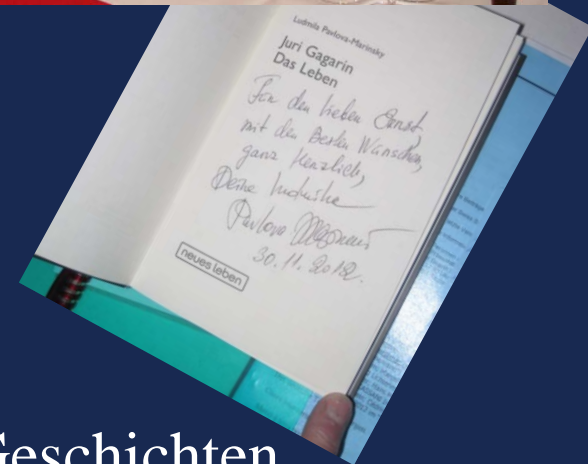 Ludmila Pavlova-Marinsky
Juri Gagarin
Das Leben
Für den lieben Ernst,
mit den Besten Wünschen,
ganz herzlich,
Deine
Pavlova
30.11.2012.
neues leben
Geschichten